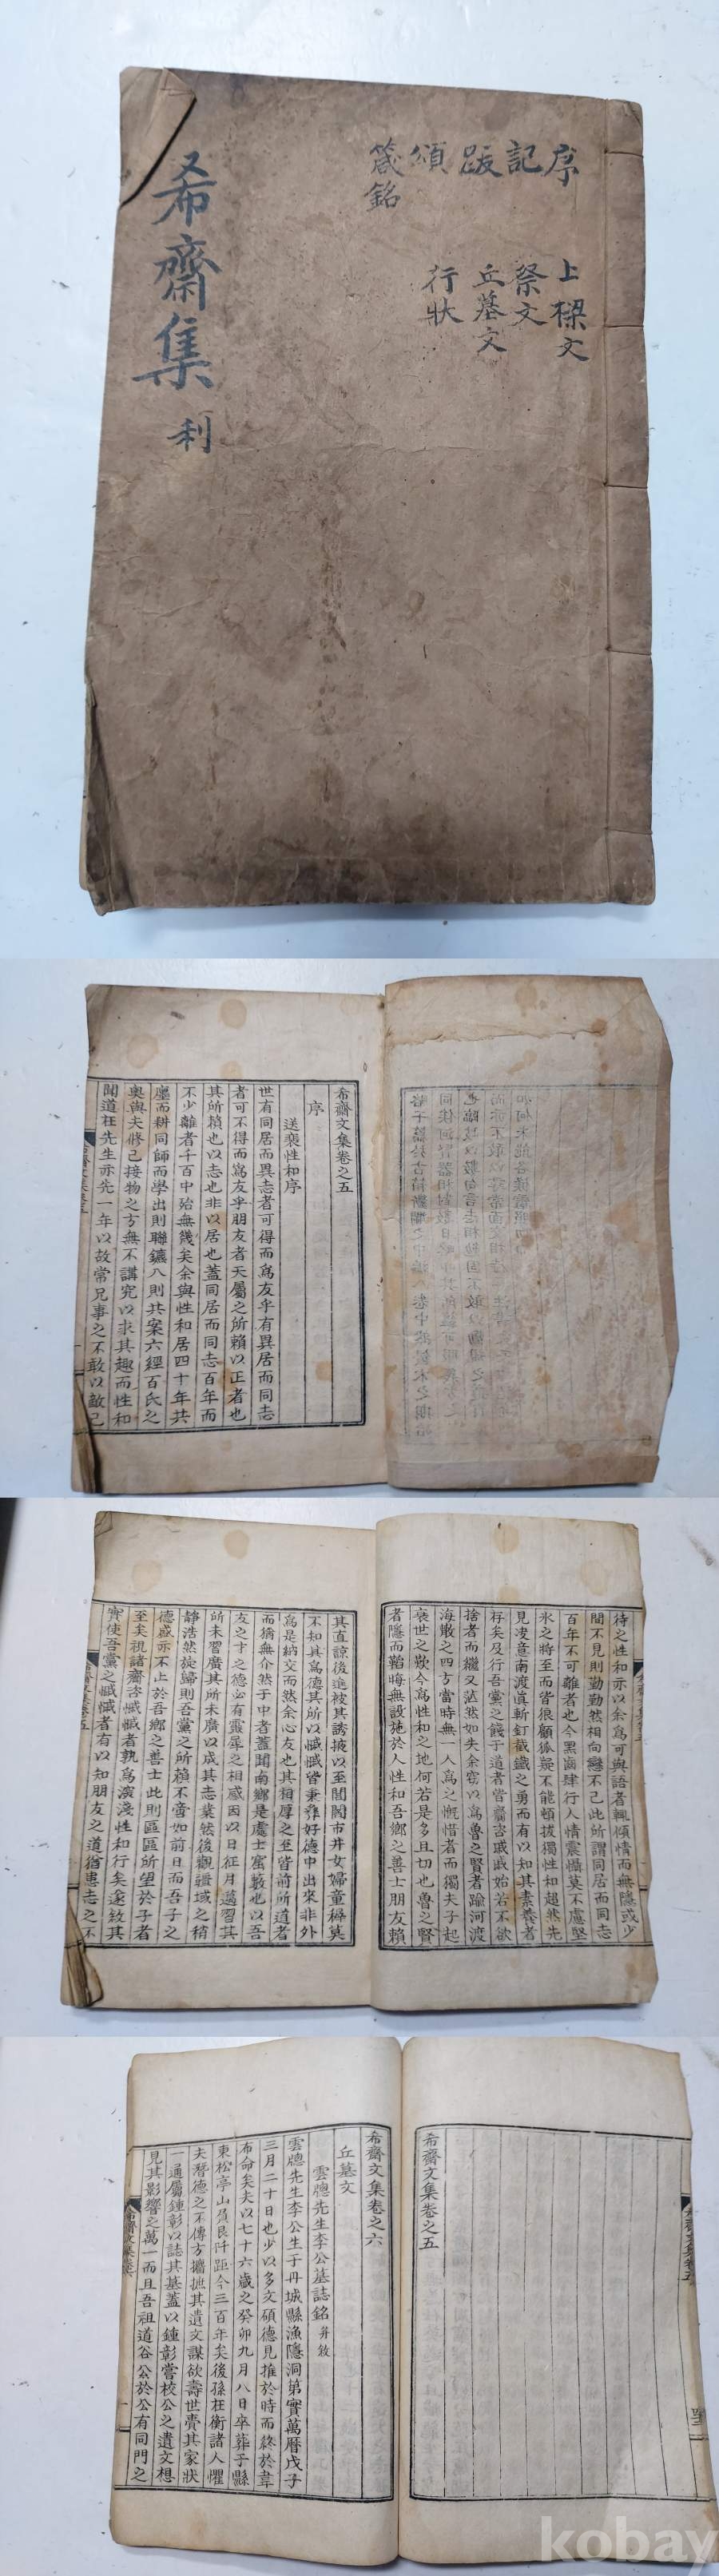 希齋集 利
序
記
跋
頌
箴銘
上樑文
祭文
丘墓文
行狀
希齋文集卷之五
序
送裴性和序
世有同居而異志者可得而爲友乎有異居而同志
者可不得而爲友乎朋友者天屬之所賴以正者也
其所賴也以志也非以居也蓋同居而同志百年而
不少離者千百中殆無幾矣余與性和居四十年共
廛而耕同師而學出則聯鑣入則共案六經百氏之
奧與夫修己接物之方無不講究以求其趣而性和
聞道在先生亦先一年以故常兄事之不敢以敵己
待之性和亦以余爲可與語者輒傾情而無隱或少
間不見則勤勤然相向戀不已此所謂同居而同志
百年不可離者也今黑齒肆行人情震懾莫不慮堅
氷之將至而皆狼顧狐疑不能頓拔獨性和超然先
見决意南渡眞斬釘截鐵之勇而有以知其素養者
存矣及行吾黨之餞于道者皆齎咨戚戚始若不欲
捨者而繼又茫然如失余窃以爲魯之賢者踰河渡
海散之四方當時無一人爲之慨惜者而獨夫子起
衰世之歎今爲性和之地何若是多且切也魯之賢
者隱而韜晦無設施於人性和吾鄕之善士朋友賴
其直諒後進被其誘掖以至閭閻市井女婦童穉莫
不知其爲德其所以慽慽皆秉彛好德中出來非外
爲是納交而然余心友也其相厚之至皆前所道者
而猶無介然于中者蓋聞南鄕是處士窟藪也以吾
友之才之德必有靈犀之相感因以日征月邁習其
所未習廣其所未廣以成其志業然後觀疆域之稍
靜浩然旋歸則吾黨之所賴不啻如前日而吾子之
德盛亦不止於吾鄕之善士此則區區所望於子者
至矣視諸齎咨慽慽者孰爲演淺性和行矣遂敘其
實使吾黨之慽慽者有以知朋友之道猶患志之不
希齋文集卷之五
希齋文集卷之六
丘墓文
雲牕先生李公墓誌銘 并敘
雲牕先生李公生于丹城縣漁隱洞第實萬曆戊子
三月二十日也少以多文碩德見推於時而終於韋
布命矣夫以七十六歲之癸卯九月八日卒葬于縣
東松亭山負艮阡距今三百年矣後孫在衡諸人懼
夫潛德之不傳方攟摭其遺文謀欲壽世賫其家狀
一通屬鍾彰以誌其墓蓋以鍾彰嘗校公之遺文想
見其影響之萬一而且吾祖道谷公於公有同門之
kobay